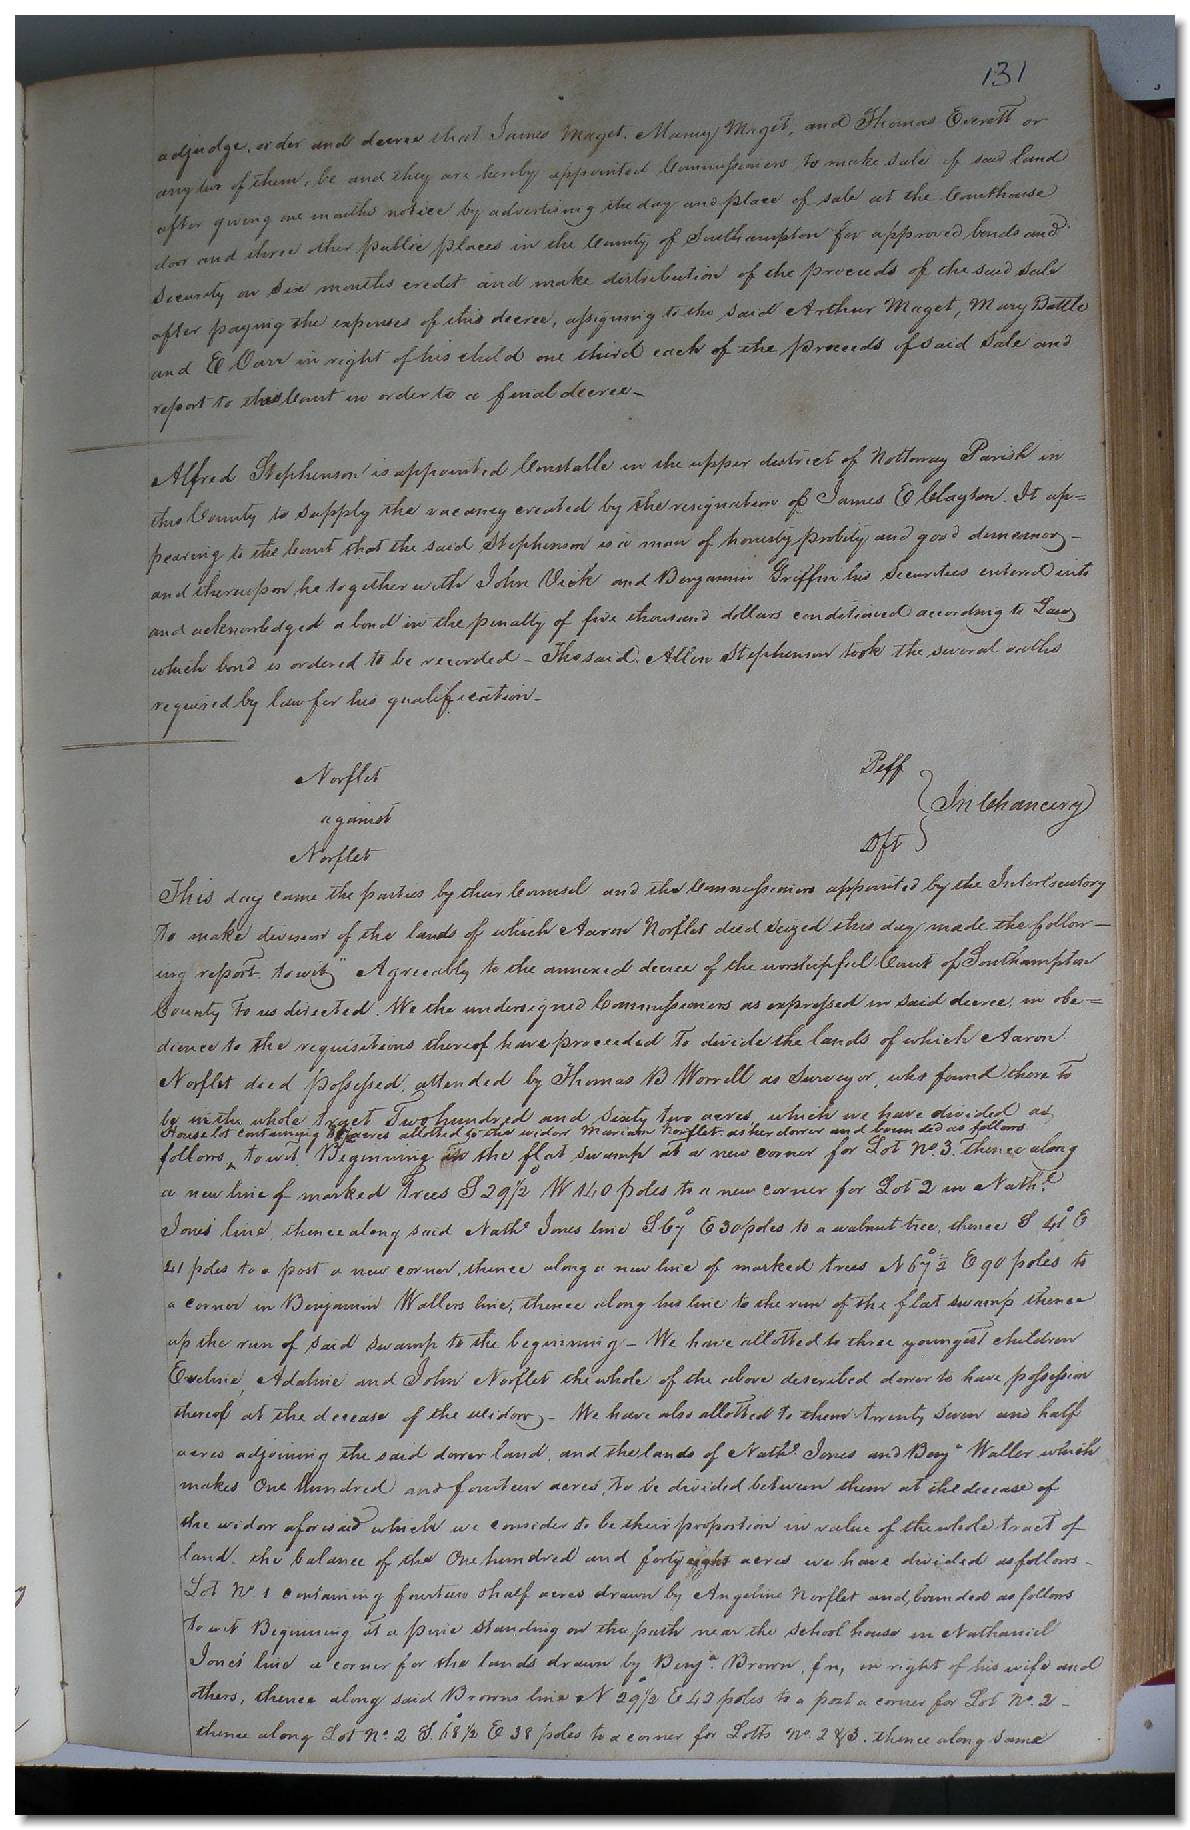 131
adjudge, order and decree that James Maget, Maney Maget, and Thomas Everett or
any two of them, be and they are hereby appointed Commissioners to make sale of said land
after giving one months notice by advertising the day and place of sale at the Courthouse
door and three other public places in the County of Southampton for approved bonds and
Security on six months credit and make distribution of the proceeds of the said sale
after paying the expenses of this decree, assigning to the said Arthur Maget, Mary Battle
and E Carr in right of his child one third each of the proceeds of said sale and
report to this Court in order to a final decree -
Alfred Stephenson is appointed Constable in the upper district of Nottoway Parish in
this County to supply the vacancy created by the resignation of James E Clayton. It ap=
pearing to the Court that the said Stephenson is a man of honesty probity and good demeanor -
and thereupon he together with John Vick and Benjamin Griffin his Securities entered into
and acknowledged a bond in the penalty of five thousand dollars conditioned according to Law
which bond is ordered to be recorded - The said Allen Stephenson took the several oaths
required by law for his qualification -
Norflet Plff
against In Chancery
Norflet Dft
This day came the parties by their Counsel and the Commissioners appointed by the Interlocutory
To make division of the lands of which Aaron Norflet died seized this day made the follow-
ing report to wit " Agreeably to the annexed decree of the worshipful Court of Southampton
County To us directed We the undersigned Commissioners as expressed in said decree, in obe=
dience to the requisitions thereof have proceeded To divide the lands of which Aaron
Norflet died possessed, attended by Thomas B Worrell as Surveyor, who found there to
be in the whole tract Two hundred and sixty two acres, which we have divided as
House lot containing acres allotted to the widow Mariam Norflet as her dower and bounded as follows
follows, to wit Beginning in the flat swamp at a new corner for Lot No. 3. thence along
a new line of marked Trees S 29½° W 140 poles to a new corner for Lot 2 in Nathl.
Jones' line, thence along said Nathl. Jones line S 67° E 30 poles to a walnut tree, thence S 41° E
21 poles to a post a new corner, thence along a new line of marked trees N 67½° E 90 poles to
a corner in Benjamin Wallers line, thence along his line to the run of the flat swamp thence
up the run of said swamp to the beginning - We have allotted to three youngest children
Eveline, Adaline and John Norflet the whole of the above described dower to have possession
thereof at the decease of the widow - We have also allotted to them twenty seven and half
acres adjoining the said dower land, and the lands of Nathl. Jones and Benja. Waller which
makes One hundred and fourteen acres, to be divided between them at the decease of
the widow aforesaid which we consider to be their proportion in value of the whole tract of
land. the balance of the One hundred and forty eight acres we have divided as follows -
Lot No. 1 containing fourteen & half acres drawn by Angeline Norflet and bounded as follows
To wit Beginning at a pine standing on the path near the school house in Nathaniel
Jones' line a corner for the lands drawn by Benja. Brown, in right of his wife and
others, thence along said Browns line N 29½° E 42 poles to a post a corner for Lot No. 2 -
thence along Lot No. 2 S. 68½° E 38 poles to a corner for Lotts No. 2 & 3. thence along same